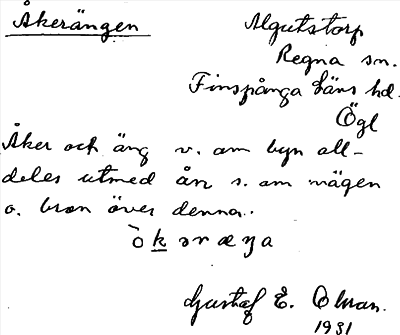 Åkerängen
Algutstorp
Regna sn.
Finspånga läns hd.
Ögl
Åker och äng v. om byn all-
deles utmed ån s. om vägen
o. bron över denna.
Gustaf E.
1931